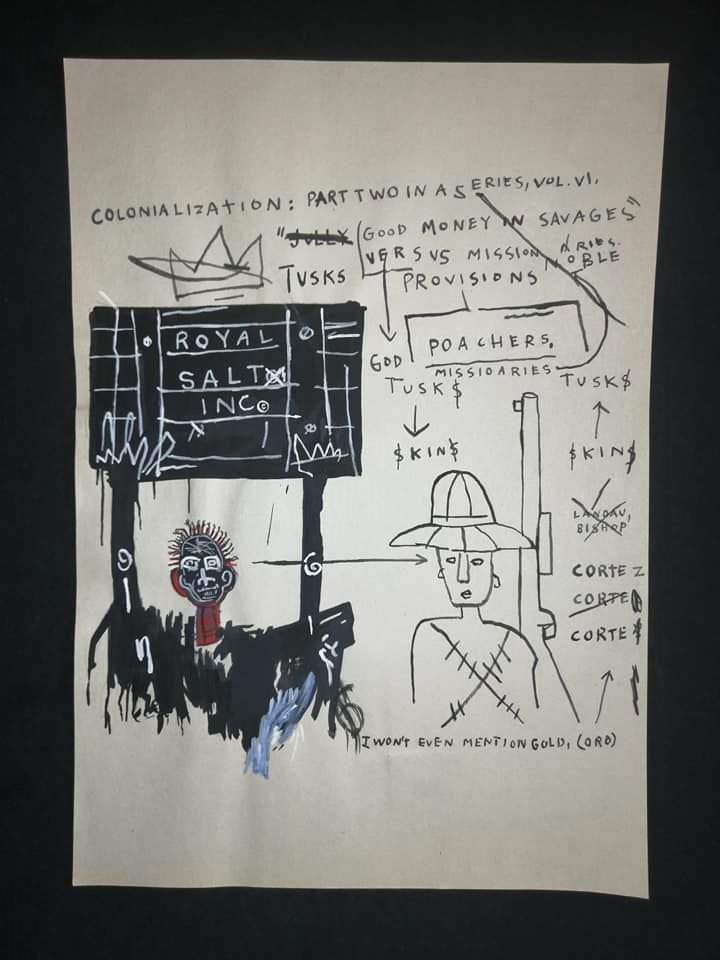 COLONIALIZATION: PART TWO IN A SERIES, VOL. VI.
"JULLY (GOOD MONEY IN SAVAGES"
VERSUS MISSIONARIES.
NOBLE
TUSKS
PROVISIONS
ROYAL
SALT
INC©
POACHERS.
MISSIOARIES
GOD
TUSK$
TUSK$
$KIN$
$KIN$
LANDAU,
BISHOP
CORTEZ
CORTE
CORTE$
G
I WON'T EVEN MENTION GOLD, (ORO)